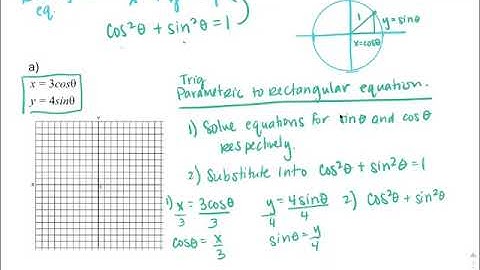 eq.
cos²θ + sin²θ = 1
1
y = sinθ
x = cosθ
a)
x = 3cosθ
y = 4sinθ
Trig
Parametric to rectangular equation.
1) Solve equations for sinθ and cosθ
respectively.
2) Substitute into cos²θ + sin²θ = 1
1) x/3 = 3cosθ/3 y/4 = 4sinθ/4 2) cos²θ + sin²θ
cosθ = x/3 sinθ = y/4